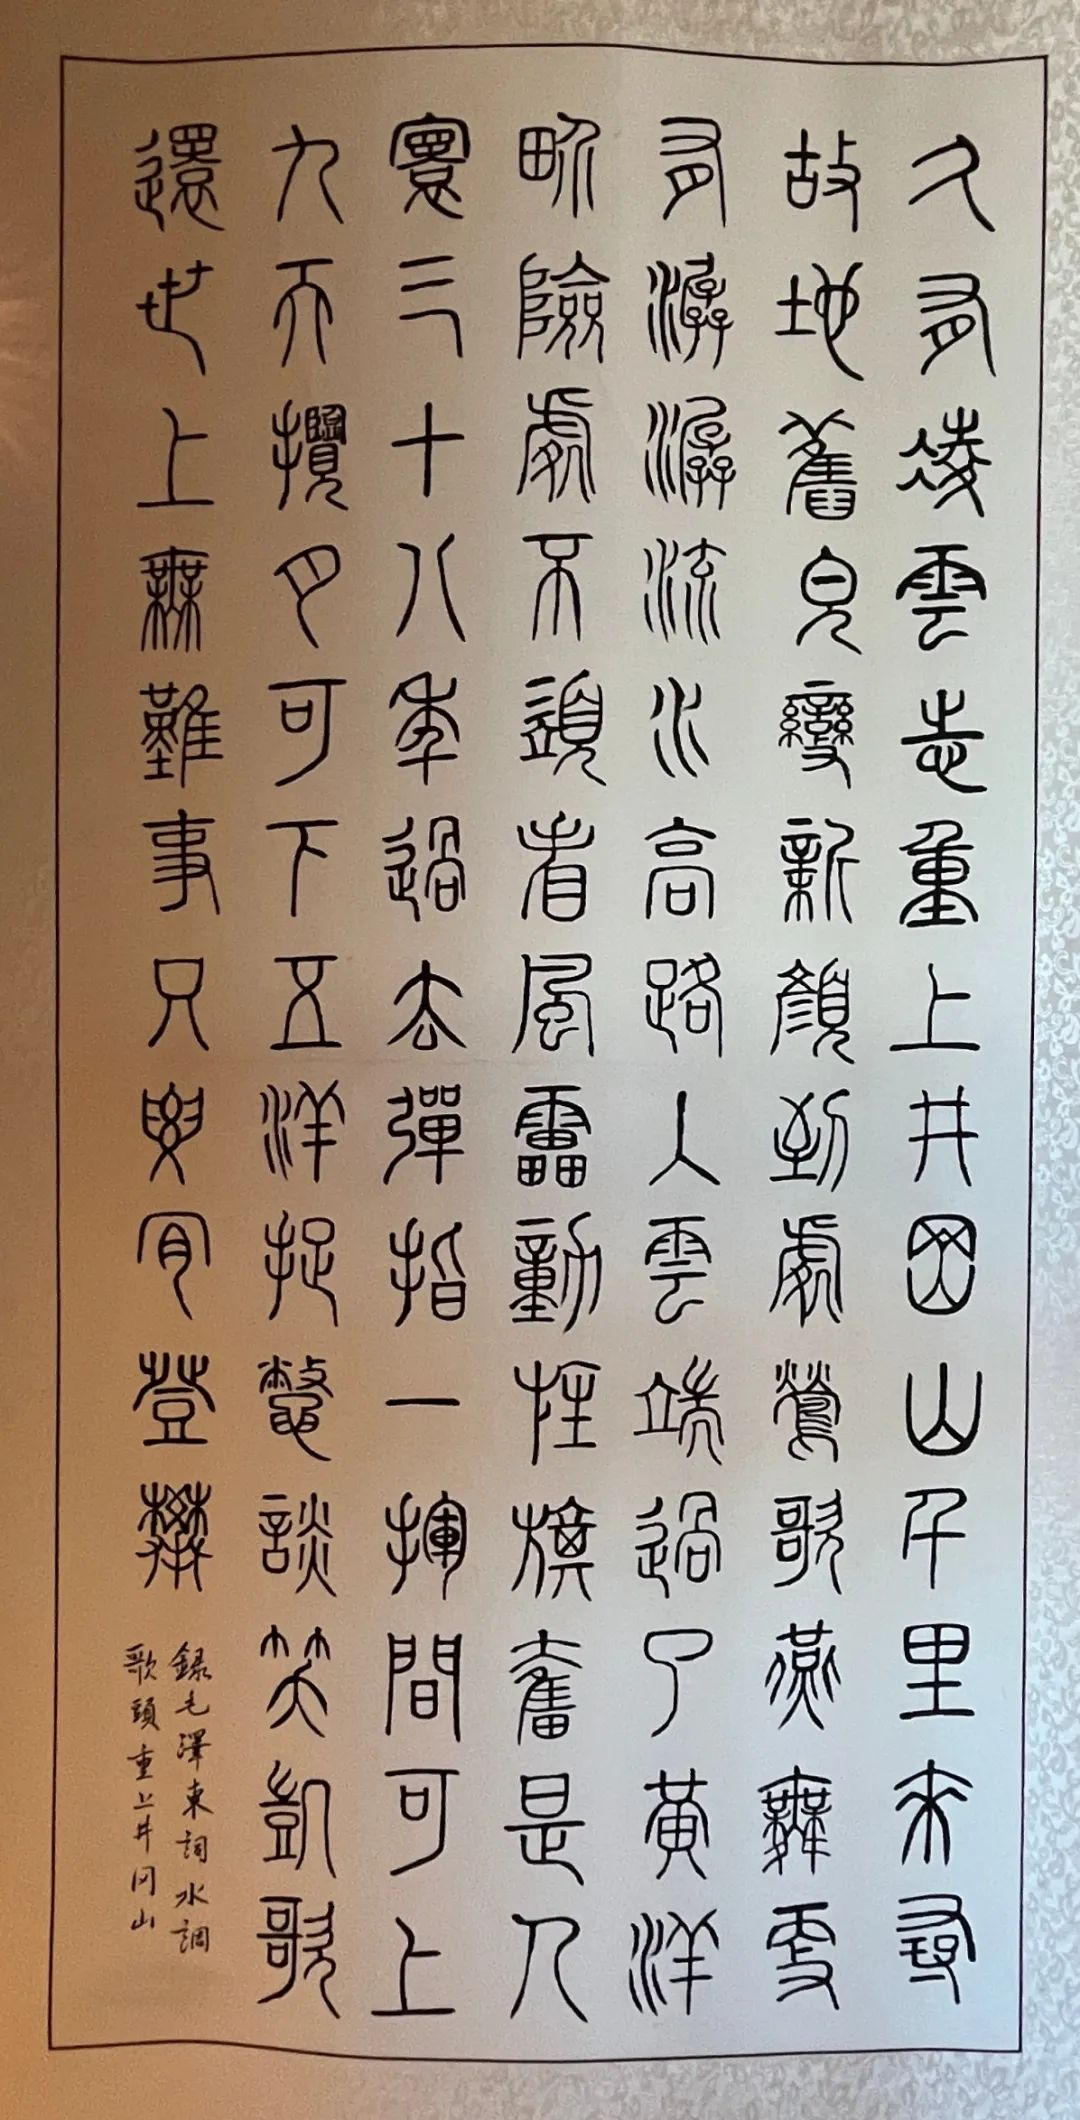 久有凌雲志重上井岡山千里來尋
故地舊皃變新顏到處鶯歌燕舞更
有潺潺流水高路入雲端過了黃洋
畍險處不須看風雷動旌旗奮是人
寰三十八年過去彈指一揮間可上
九天攬月可下五洋捉鼈談笑凱歌
還世上無難事只要肯登攀
錄毛澤東詞水調
歌頭重上井冈山